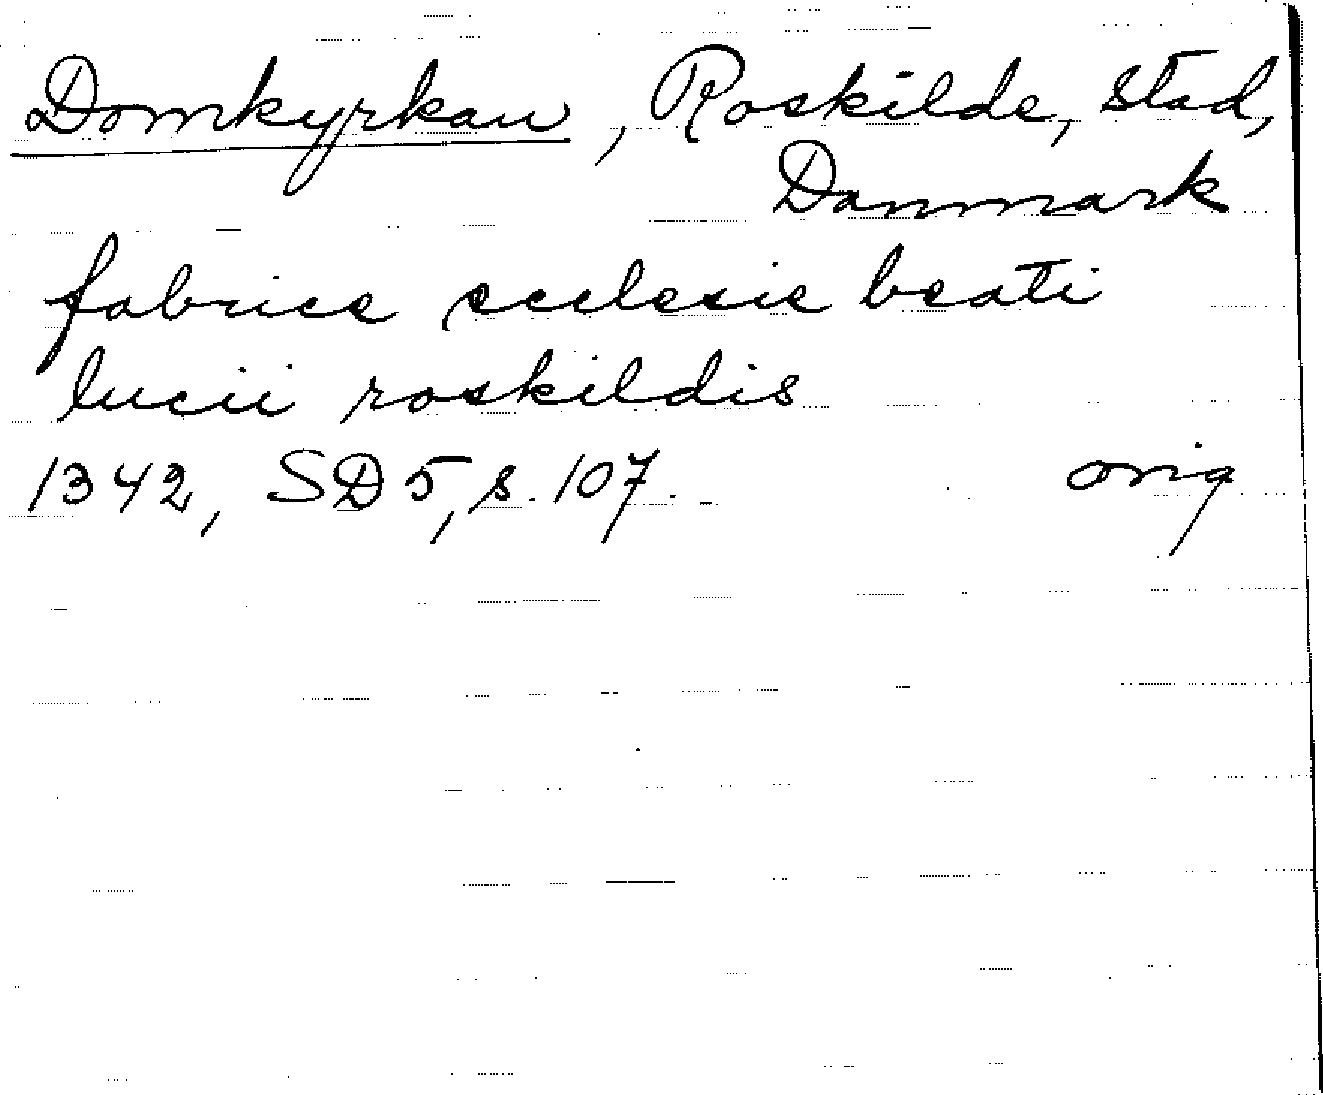 Domkyrkan, Roskilde, stad,
Danmark
fabrice ecclesie beati
lucii roskildis
1342, SD 5, s. 107. orig